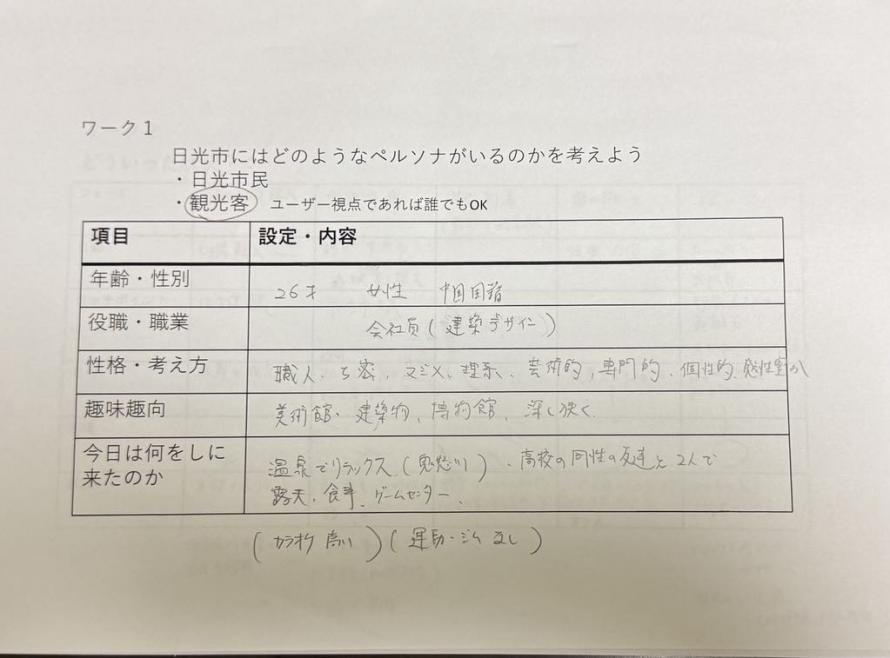 ワーク１
日光市にはどのようなペルソナがいるのかを考えよう
・日光市民
・観光客 ユーザー視点であれば誰でもOK
項目 設定・内容
年齢・性別 26才 女性 中国国籍
役職・職業 会社員(建築デザイン)
性格・考え方 職人、ち密、マジメ、理系、芸術的、専門的、個性的、感性豊か
趣味趣向 美術館、建築物、博物館、深く狭く
今日は何をしに 温泉でリラックス(鬼怒川)、高校の同性の友達と2人で
来たのか 露天、食事、ゲームセンター
(カラオケ 高い)(運動・ジム なし)